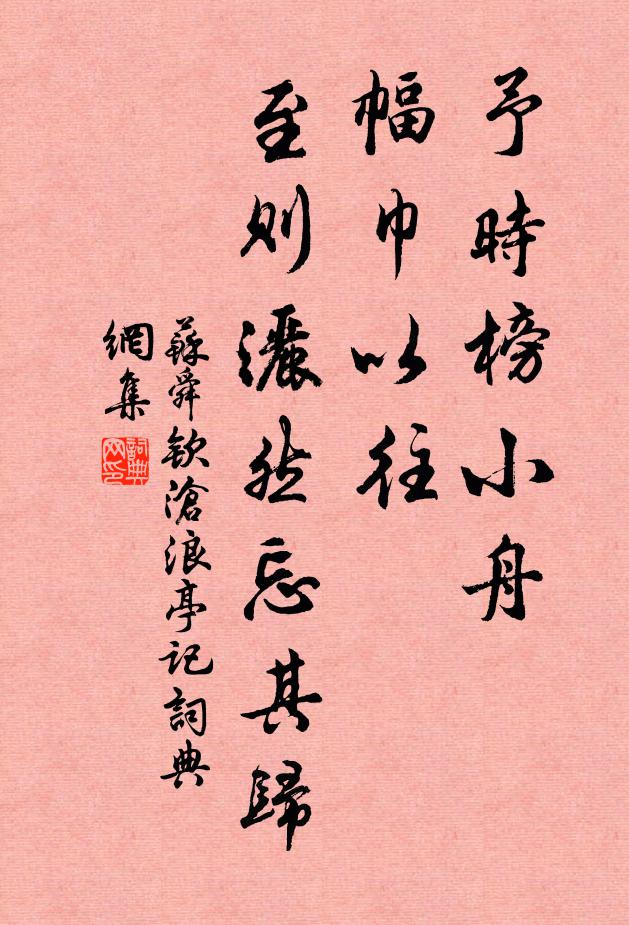 予時榜小舟
幅巾以往
至則灑然忘其歸
蘇舜欽滄浪亭記詞典
網集
詞典網印